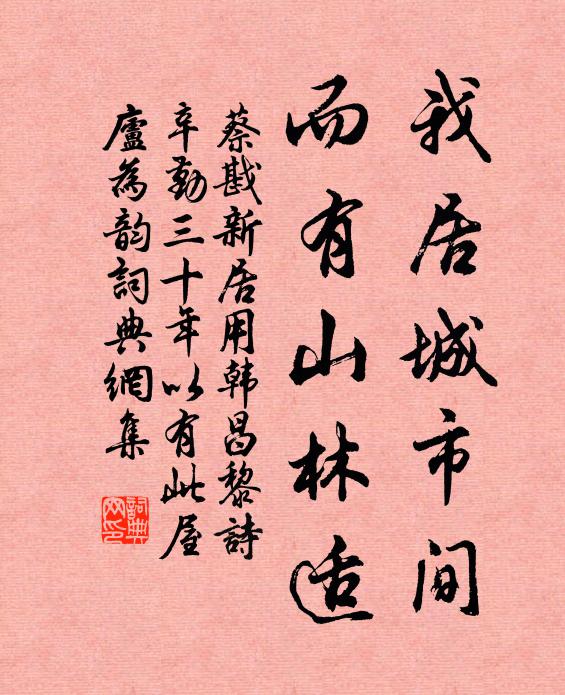 我居城市间
而有山林适
蔡戡新居用韩昌黎詩
辛勤三十年以有此屋
廬為韵詞典網集
詞典網印